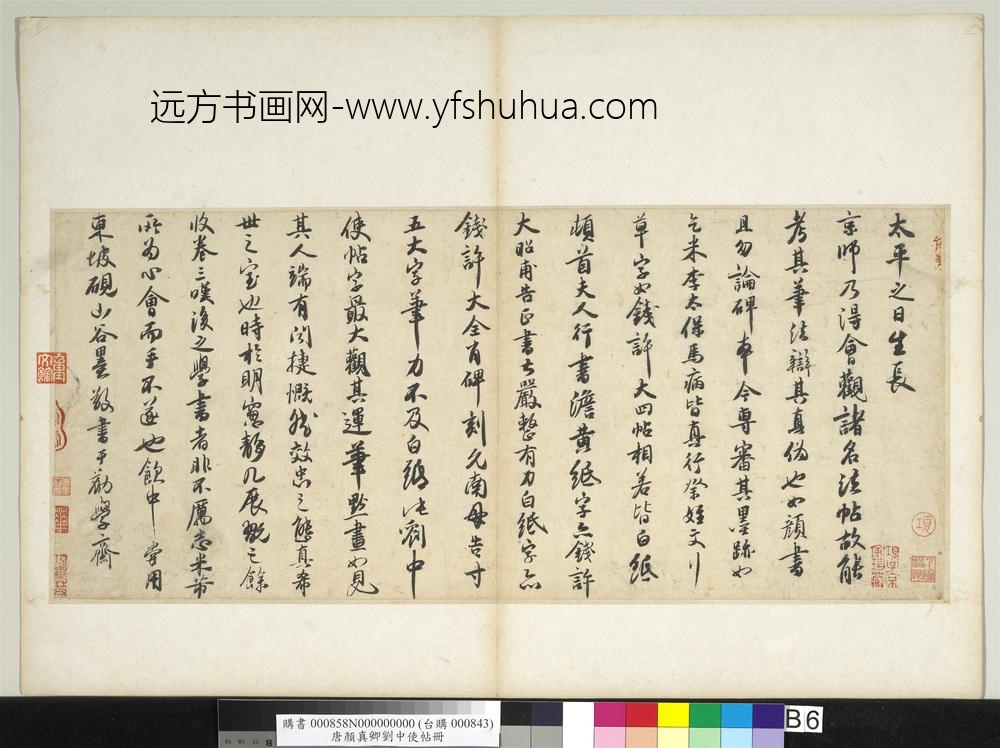 远方书画网-www.yfshuhua.com
太平之日生長
京師乃得會觀諸名法帖故能
考其筆法辯其真偽也如顏書
且勿論碑本今專審其墨跡如
乞米李太保馬病皆真行祭姪文行
草字如錢許大四帖相若皆白紙
頓首夫人行書澹黃紙字亦錢許
大昭甫告正書嚴整有力白紙字亦
錢許大全有碑刻允南母告寸
五大字筆力不及白紙中
使帖字最大觀其運筆點畫如見
其人端有聞捷慨然效忠之態真希
世之寶也時於明窗靜几展玩之餘
收卷三嘆後之學書者非不厲志米芾
所為心會而手不逮也飲中嘗用
東坡硯山谷墨敬書于勤學齋
項
項子京家珍藏
購書 000858N000000000 (台購 000843)
唐顏真卿劉中使帖冊
B6